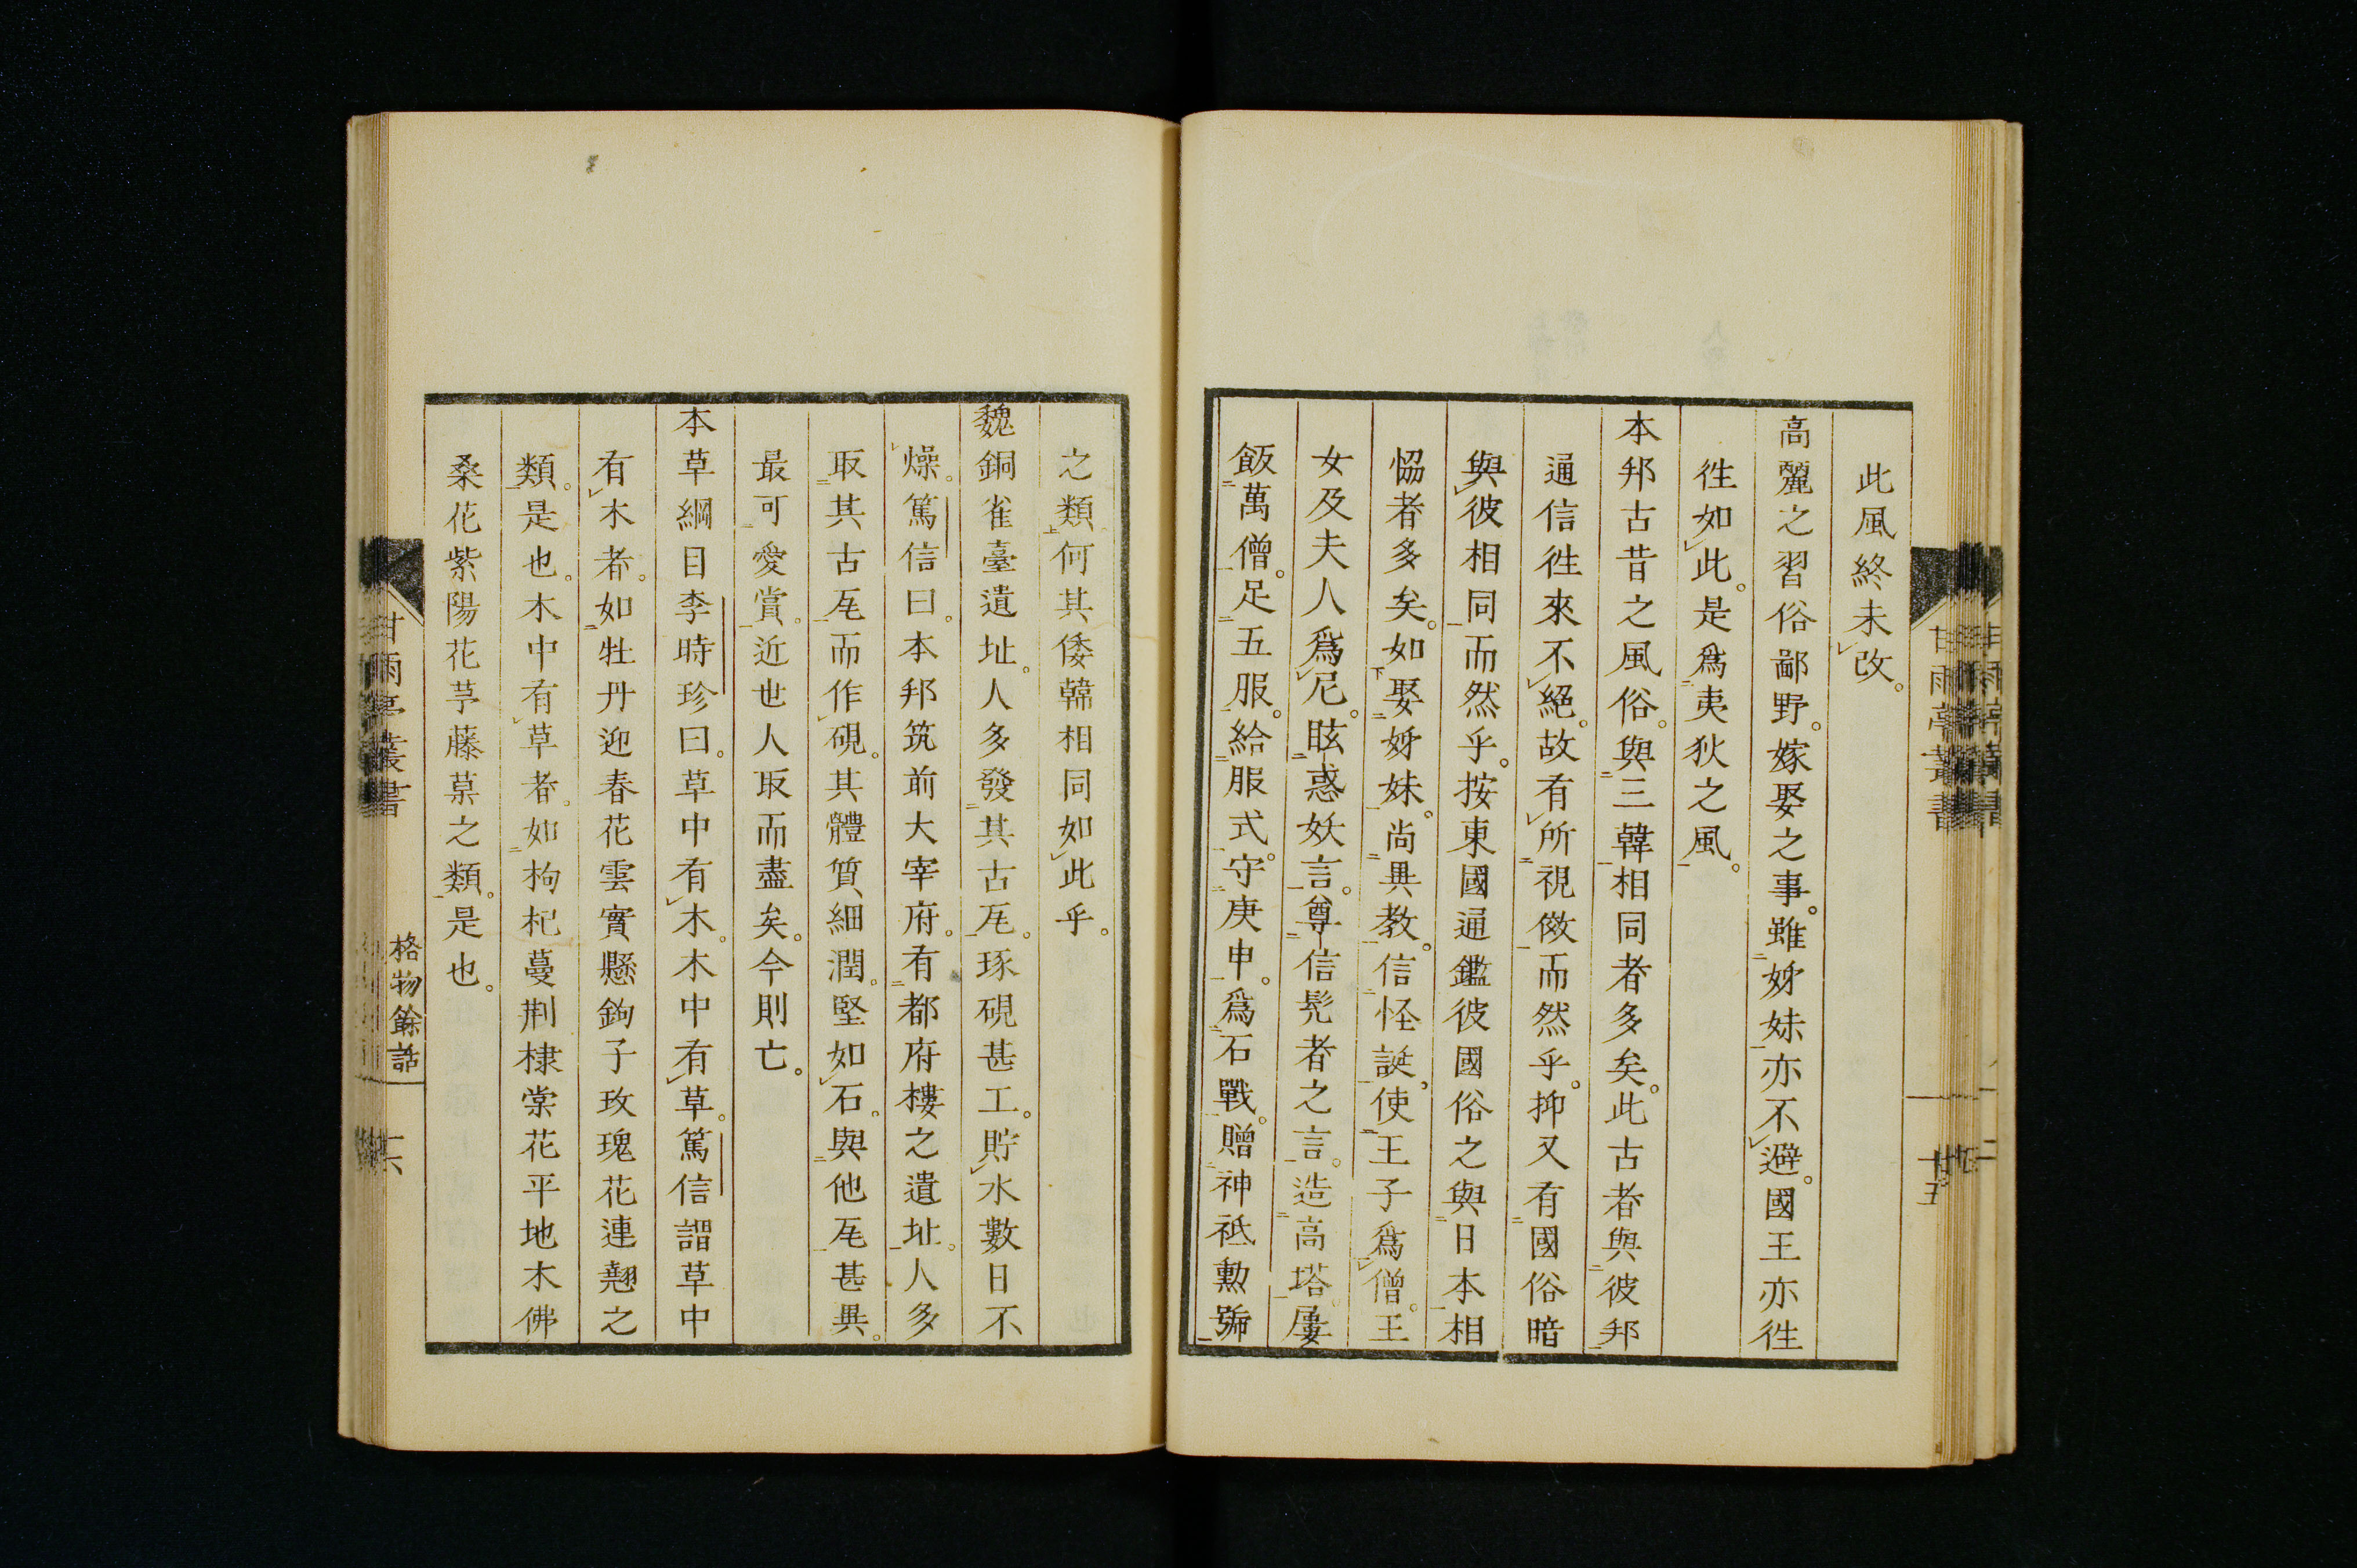 此風終未改。
高麗之習俗鄙野。嫁娶之事。雖姊妹亦不避。國王亦徃
徃如此。是爲夷狄之風。
本邦古昔之風俗。與三韓相同者多矣。此古者與彼邦
通信徃來不絕。故有所視傚而然乎。抑又有國俗暗
與彼相同而然乎。按東國通鑑彼國俗之與日本相
恊者多矣。如娶姊妹。尚異教。信怪誕。使王子爲僧。王
女及夫人爲尼。眩惑妖言。尊信髡者之言。造高塔。屢
飯萬僧。足五服。給服式。守庚申。爲石戰。贈神祗勲號
之類。何其倭韓相同如此乎。
魏銅雀臺遺址。人多發其古瓦。琢硯甚工。貯水數日不
燥。篤信曰。本邦筑前大宰府。有都府樓之遺址。人多
取其古瓦而作硯。其體質細潤。堅如石。與他瓦甚異。
最可愛賞。近世人取而盡矣。今則亡。
本草綱目李時珍曰。草中有木。木中有草。篤信謂草中
有木者。如牡丹迎春花雲實懸鉤子玫瑰花連翹之
類。是也。木中有草者。如枸杞蔓荆棣棠花平地木佛
桑花紫陽花芧藤菒之類。是也。
甘雨亭叢書
格物餘話
十六
甘雨亭叢書
十五